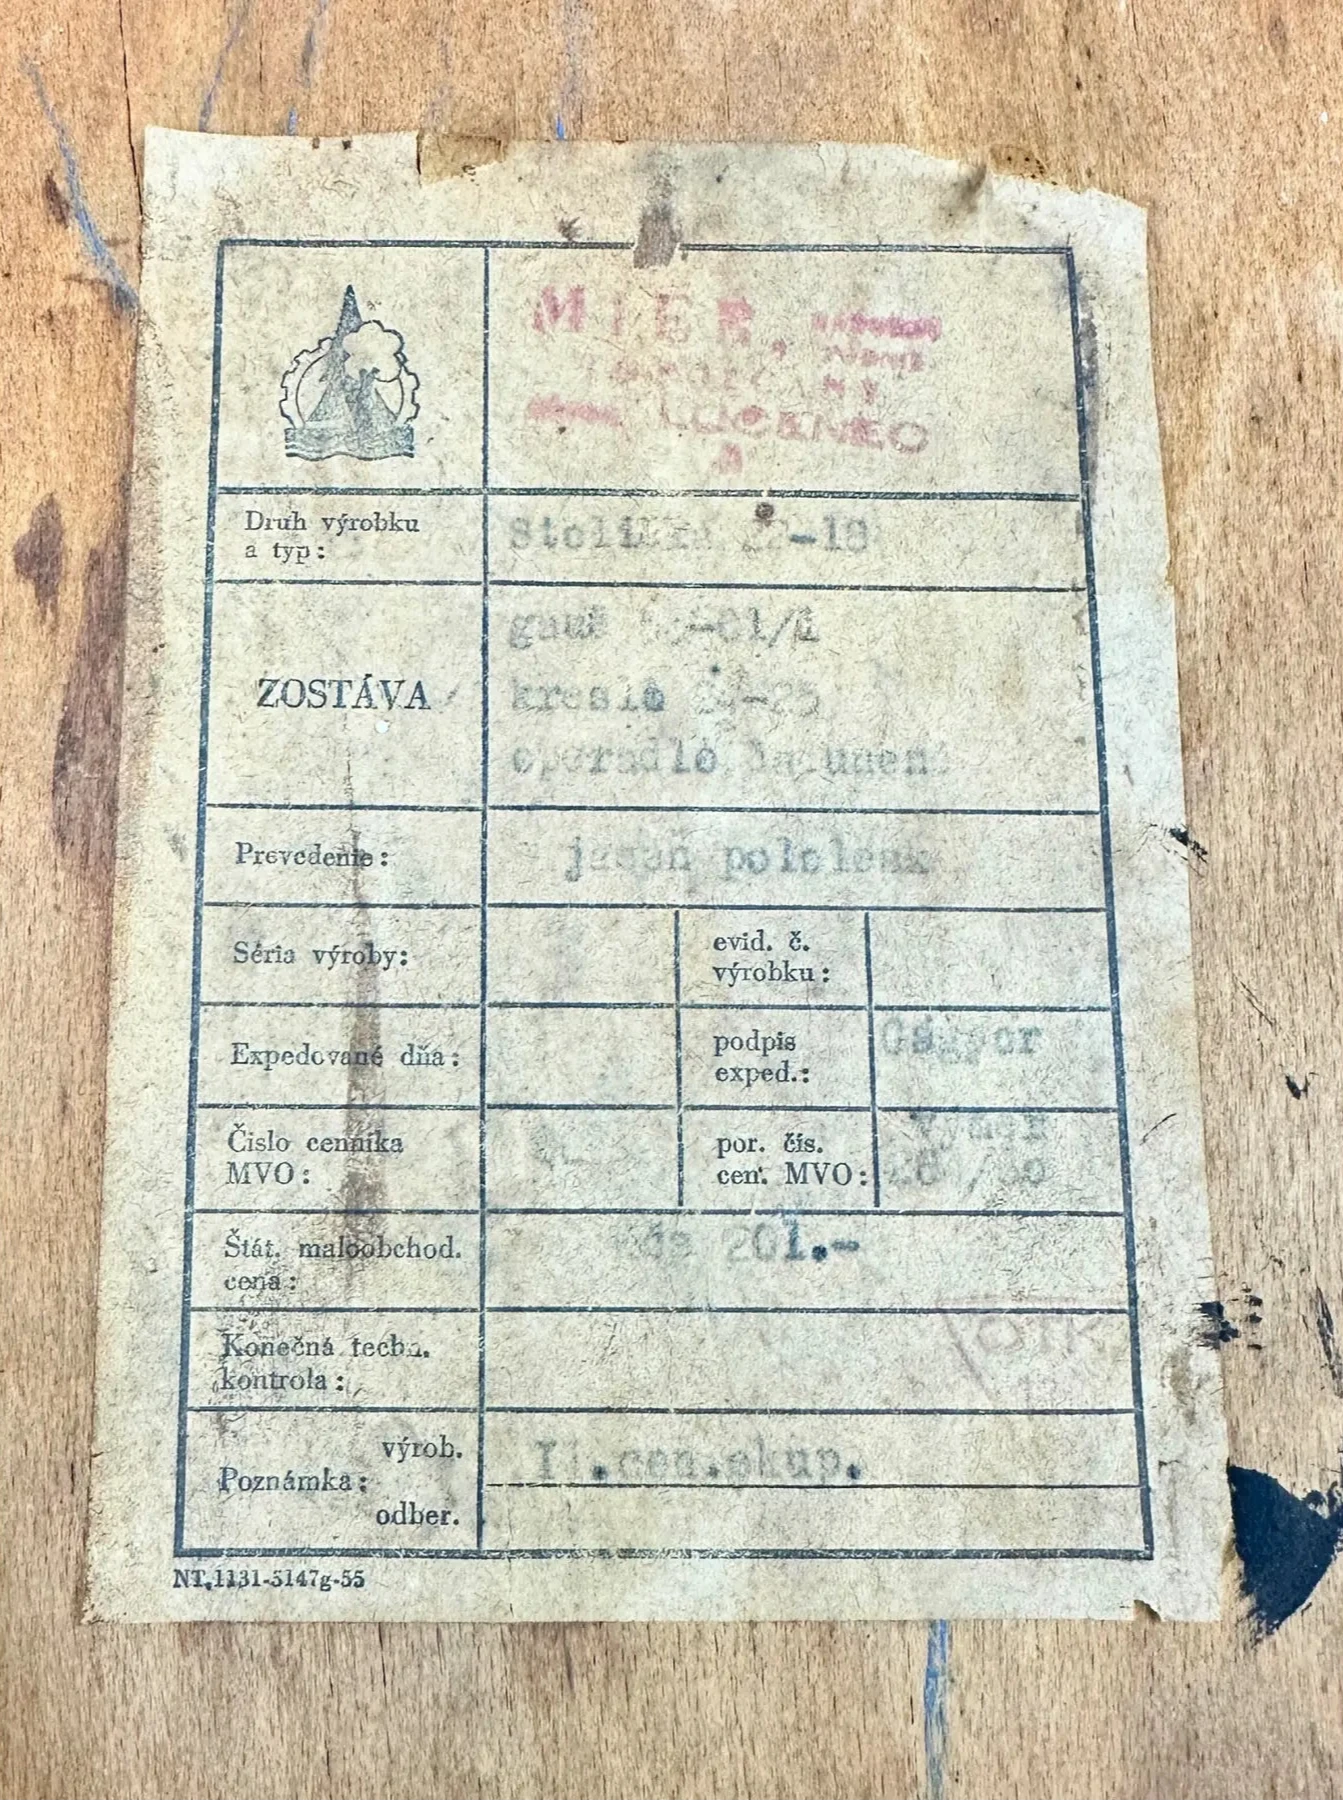 MIER,
LUČENEC
Druh výrobku
a typ:
22-18
ZOSTÁVA
gauč
kreslo
operadlo
Prevedenie:
jaseň pololesk
Séria výroby:
evid. č.
výrobku:
Expedované dňa:
podpis
exped.:
Gáspor
Číslo cenníka
MVO:
por. čís.
cen. MVO:
Výmer
Štát. maloobchod.
cena:
Kčs 201.-
Konečná techn.
kontrola:
výrob.
Poznámka:
odber.
II.cen.skup.
NT.1131-5147g-55